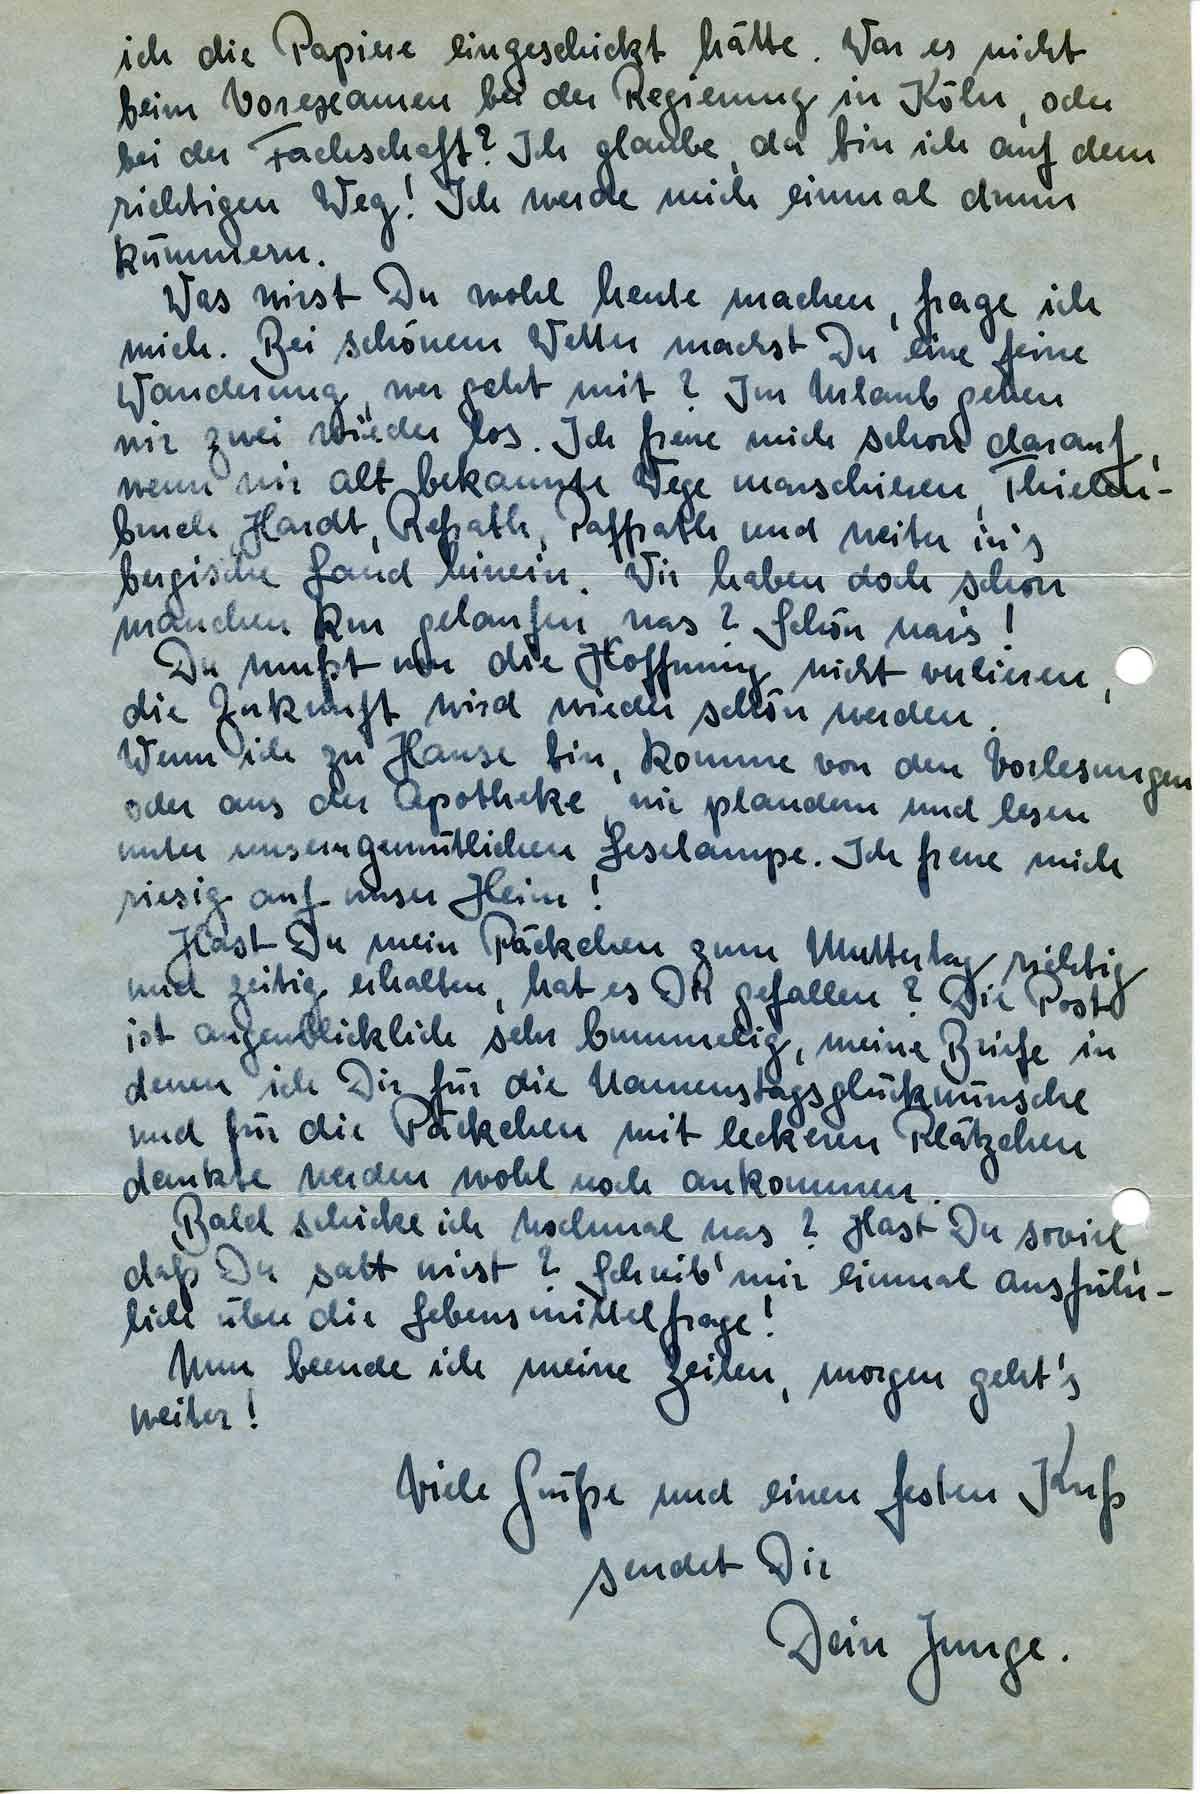 ich die Papiere eingeschickt hätte. War es nicht
beim Vorexamen bei der Regierung in Köln, oder
bei der Fachschaft? Ich glaube, da bin ich auf dem
richtigen Weg! Ich werde mich einmal drum
kümmern.
Was wirst Du wohl heute machen, frage ich
mich. Bei schönem Wetter machst Du eine feine
Wanderung, wer geht mit? Im Urlaub gehen
wir zwei wieder los. Ich freue mich schon darauf,
wenn wir alt bekannte Wege marschieren, Thielen-
bruch, Hardt, Refrath, Paffrath und weiter in's
bergische Land hinein. Wir haben doch schon
manchen km gelaufen was? Schön war's!
Du mußt nur die Hoffnung nicht verlieren,
die Zukunft wird wieder schön werden.
Wenn ich zu Hause bin, komme von den Vorlesungen
oder aus der Apotheke, wir plaudern und lesen
unter unserer gemütlichen Leselampe. Ich freue mich
riesig auf unser Heim!
Hast Du mein Päckchen zum Muttertag richtig
und zeitig erhalten, hat es Dir gefallen? Die Post
ist augenblicklich sehr bummelig, meine Briefe in
denen ich Dir für die Namenstagsglückwünsche
und für die Päckchen mit leckeren Plätzchen
dankte werden wohl noch ankommen.
Bald schicke ich nochmal was? Hast Du soviel
daß Du satt wirst? Schreib' mir einmal ausführ-
lich über die Lebensmittelfrage!
Nun beende ich meine Zeilen, morgen geht's
weiter!
Viele Grüße und einen festen Kuß
sendet Dir
Dein Junge.